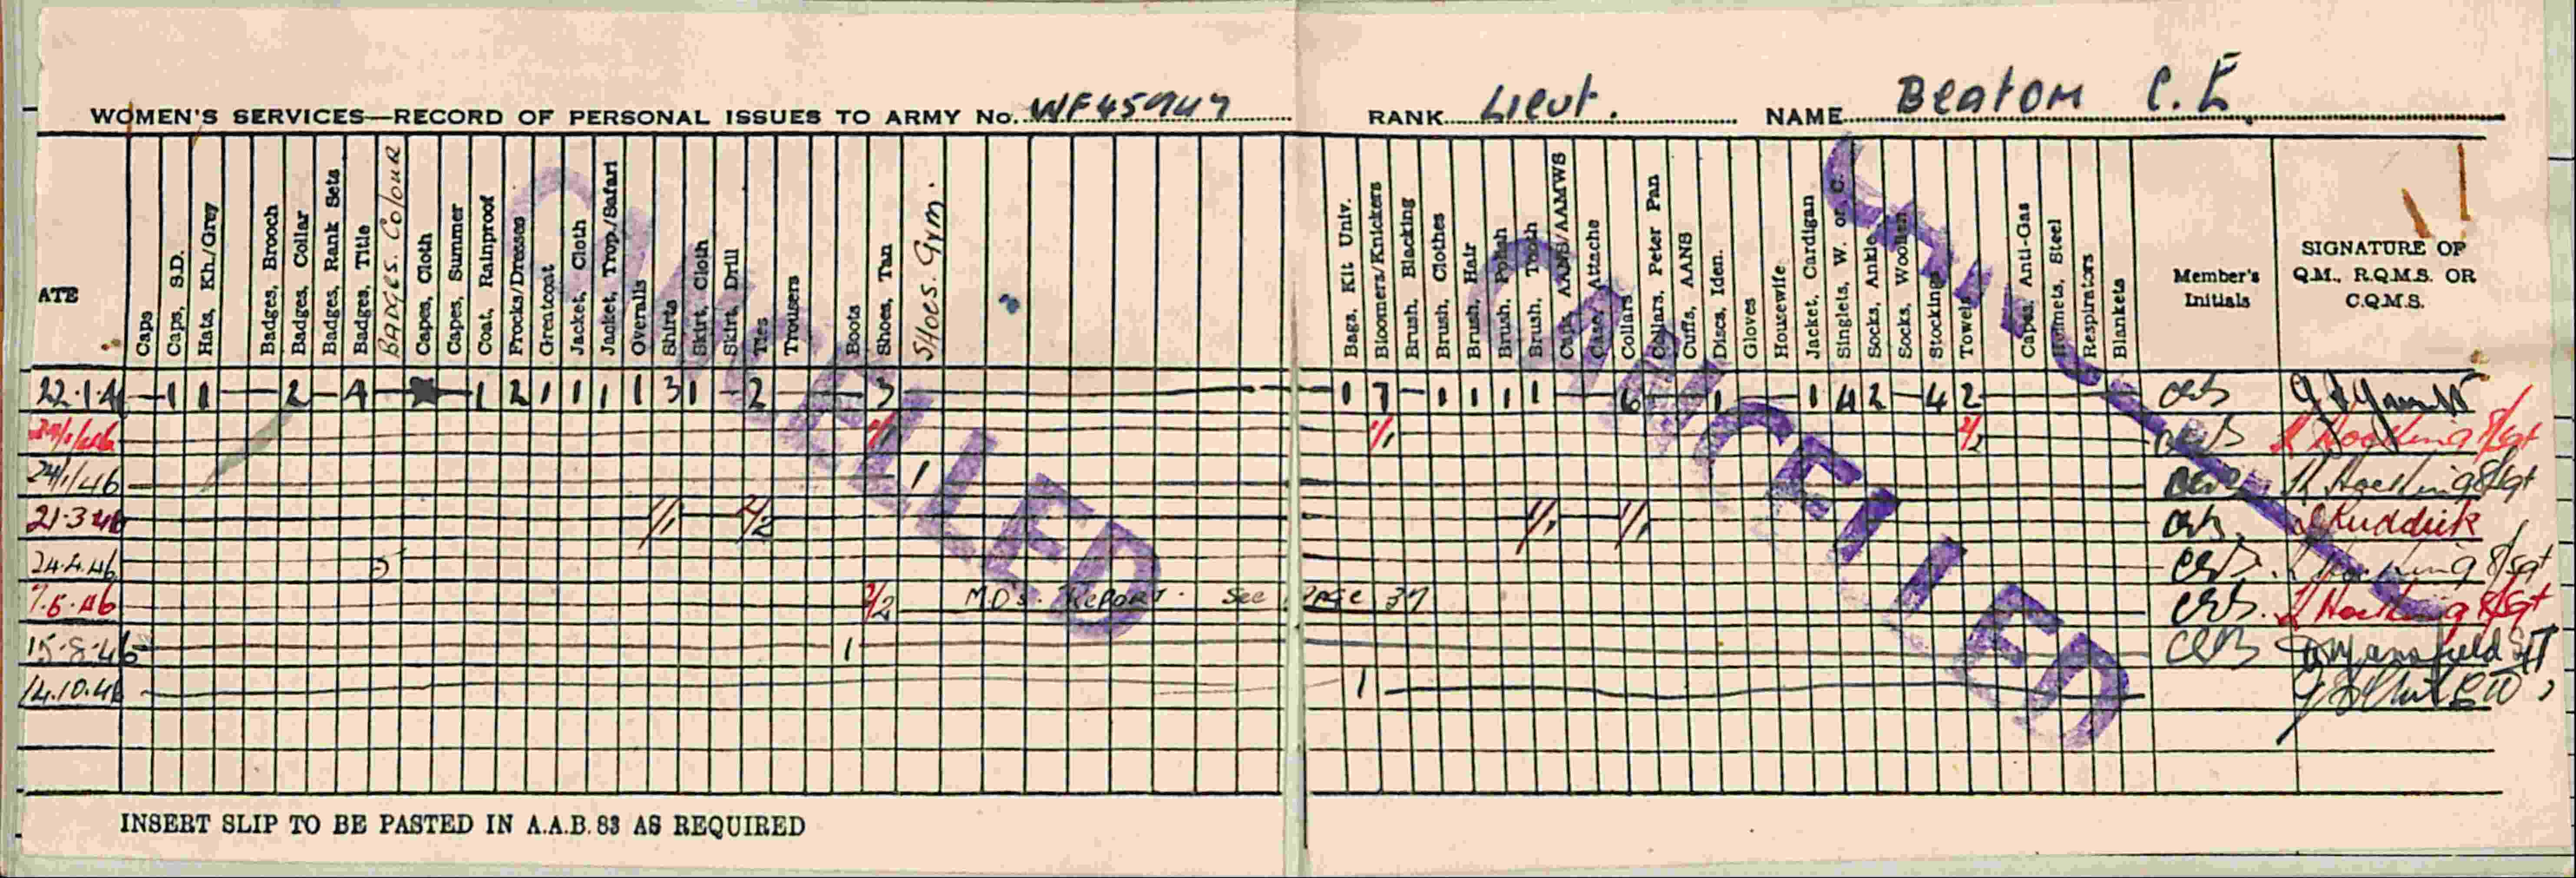 WOMEN'S SERVICES—RECORD OF PERSONAL ISSUES TO ARMY No. WF45947 RANK Lieut. NAME Beaton C. E
ATE
Caps
Caps, S.D.
Hats, Kh./Grey
Badges, Brooch
Badges, Collar
Badges, Rank Sets
Badges, Title
BADGES. Colour
Capes, Cloth
Capes, Summer
Coat, Rainproof
Frocks/Dresses
Greatcoat
Jacket, Cloth
Jacket, Trop./Safari
Overalls
Shirts
Skirt, Cloth
Skirt, Drill
Ties
Trousers
Boots
Shoes, Tan
Shoes. Gym.
Bags, Kit Univ.
Bloomers/Knickers
Brush, Blacking
Brush, Clothes
Brush, Hair
Brush, Polish
Brush, Tooth
AANS/AAMWS
Case, Attache
Collars
Collars, Peter Pan
Cuffs, AANS
Discs, Iden.
Gloves
Housewife
Jacket, Cardigan
Singlets, W. or C.
Socks, Ankle
Socks, Woollen
Stockings
Towels
Capes, Anti-Gas
Helmets, Steel
Respirators
Blankets
Member's Initials
SIGNATURE OF
Q.M., R.Q.M.S. OR
C.Q.M.S.
22.1.4 1 1 2 4 1 2 1 1 1 1 3 1 2 3 1 7 1 1 1 1 6 1 1 4 2 4 2 CEB
1/1 1/1 2/2 CEB L Hocking S/Sgt
24/1/46 1 CEB L Hocking S/Sgt
21.3.46 1/1 2/2 1/1 1/1 CEB Ruddick
24.4.46 5 CEB. L Hocking S/Sgt
7.5.46 2/2 M.D's. Report. See Page 37 CEB. L Hocking S/Sgt
15.8.46 1 CEB Mansfield
14.10.46 1
CANCELLED
CANCELLED
CANCELLED
INSERT SLIP TO BE PASTED IN A.A.B. 83 AS REQUIRED